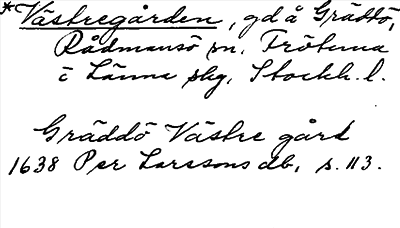 *Västregården, gd å Gräddö,
Rådmansö sn, Frötuna
o Länna skg, Stockh. l.
Gräddö Västre gård
1638 Per Larssons db, s. 113.